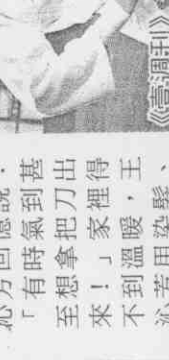 《壹週刊》
回憶說，
「有時氣到甚
至想拿把刀出
來！」家裡得
不到溫暖，王
用染髮、